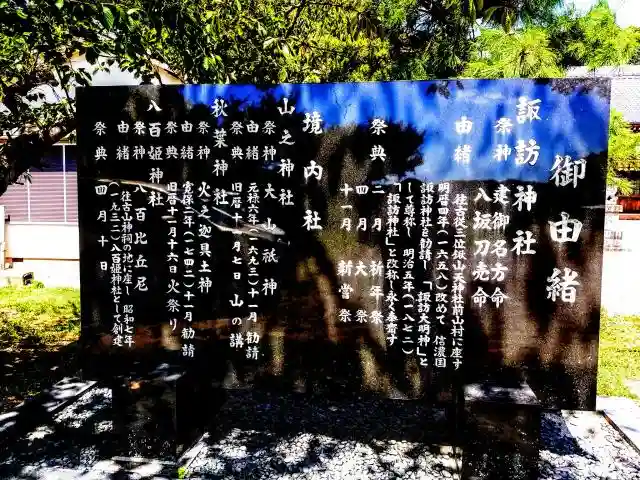 御由緒
諏訪神社
祭神 建御名方命
八坂刀売命
由緒 往古従三位蔵山天神社前山村に座す
明暦四年(一六五八)改めて 信濃国
諏訪神社を勧請し 「諏訪大明神」と
して尊称し 明治五年(一八七二)
「諏訪神社」と改称し永く奉斎す
祭典 二月 祈年祭
四月 大祭
十一月 新嘗祭
境内社
山之神社
祭神 大山祇神
由緒 元禄六年(一六九三)十一月 勧請
祭典 旧暦十一月七日 山の講
秋葉神社
祭神 火之迦具土神
由緒 寛保二年(一七四二)十一月 勧請
祭典 旧暦十一月十六日 火祭り
八百姫神社
祭神 八百比丘尼
由緒 往古山神祠の地に座し 昭和七年
(一九三二)八百姫神社として創建
祭典 四月十日